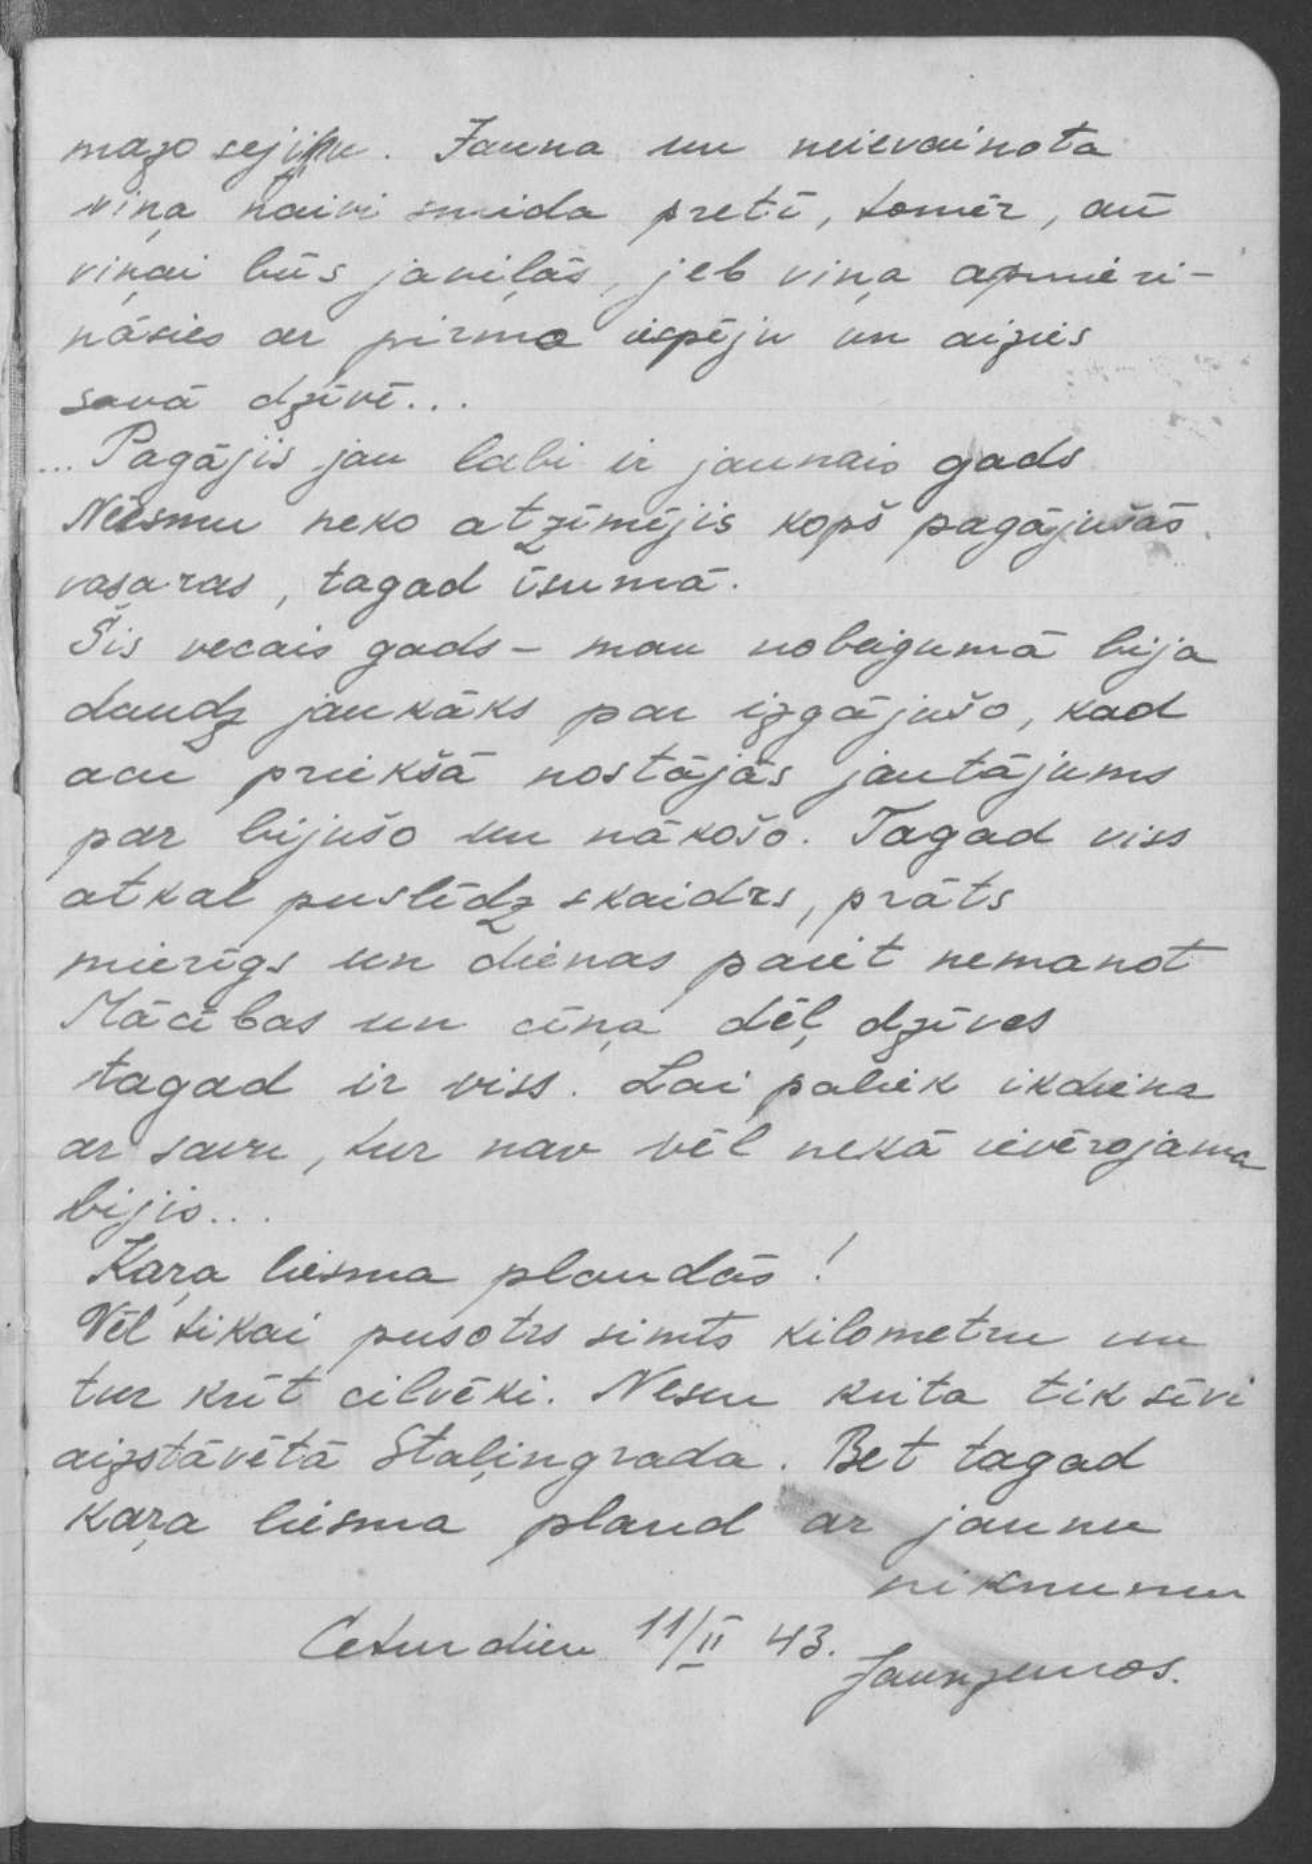 mazo sejiņu. Jauna un neievainota
viņa naivi smida pretī, tomēr, arī
viņai būs javiļās, jeb viņa apmieri-
nāsies ar pirmo iespēju un aizies
savā dzīvē...
... Pagājis jau labi ir jaunais gads
Neesmu neko atzīmējis kopš pagājušās
vasaras, tagad īsumā.
Šis vecais gads - man nobeigumā bija
daudz jaukāks par izgājušo, kad
acu priekšā nostājās jautājums
par bijušo un nākošo. Tagad viss
atkal puslīdz skaidrs, prāts
mierīgs un dienas paiet nemanot
Mācības un cīņa dēļ dzīves
tagad ir viss. Lai paliek ikdiena
ar savu, tur nav vēl nekā ievērojama
bijis...
Kaŗa liesma plandās!
Vēl tikai pusotrs simts kilometru un
tur krīt cilvēki. Nesen krita tik sīvi
aizstāvētā Staļingrada. Bet tagad
kaŗa liesma pland ar jaunu
niknumu
Ceturdien 11/II 43.
Jaunzemos.